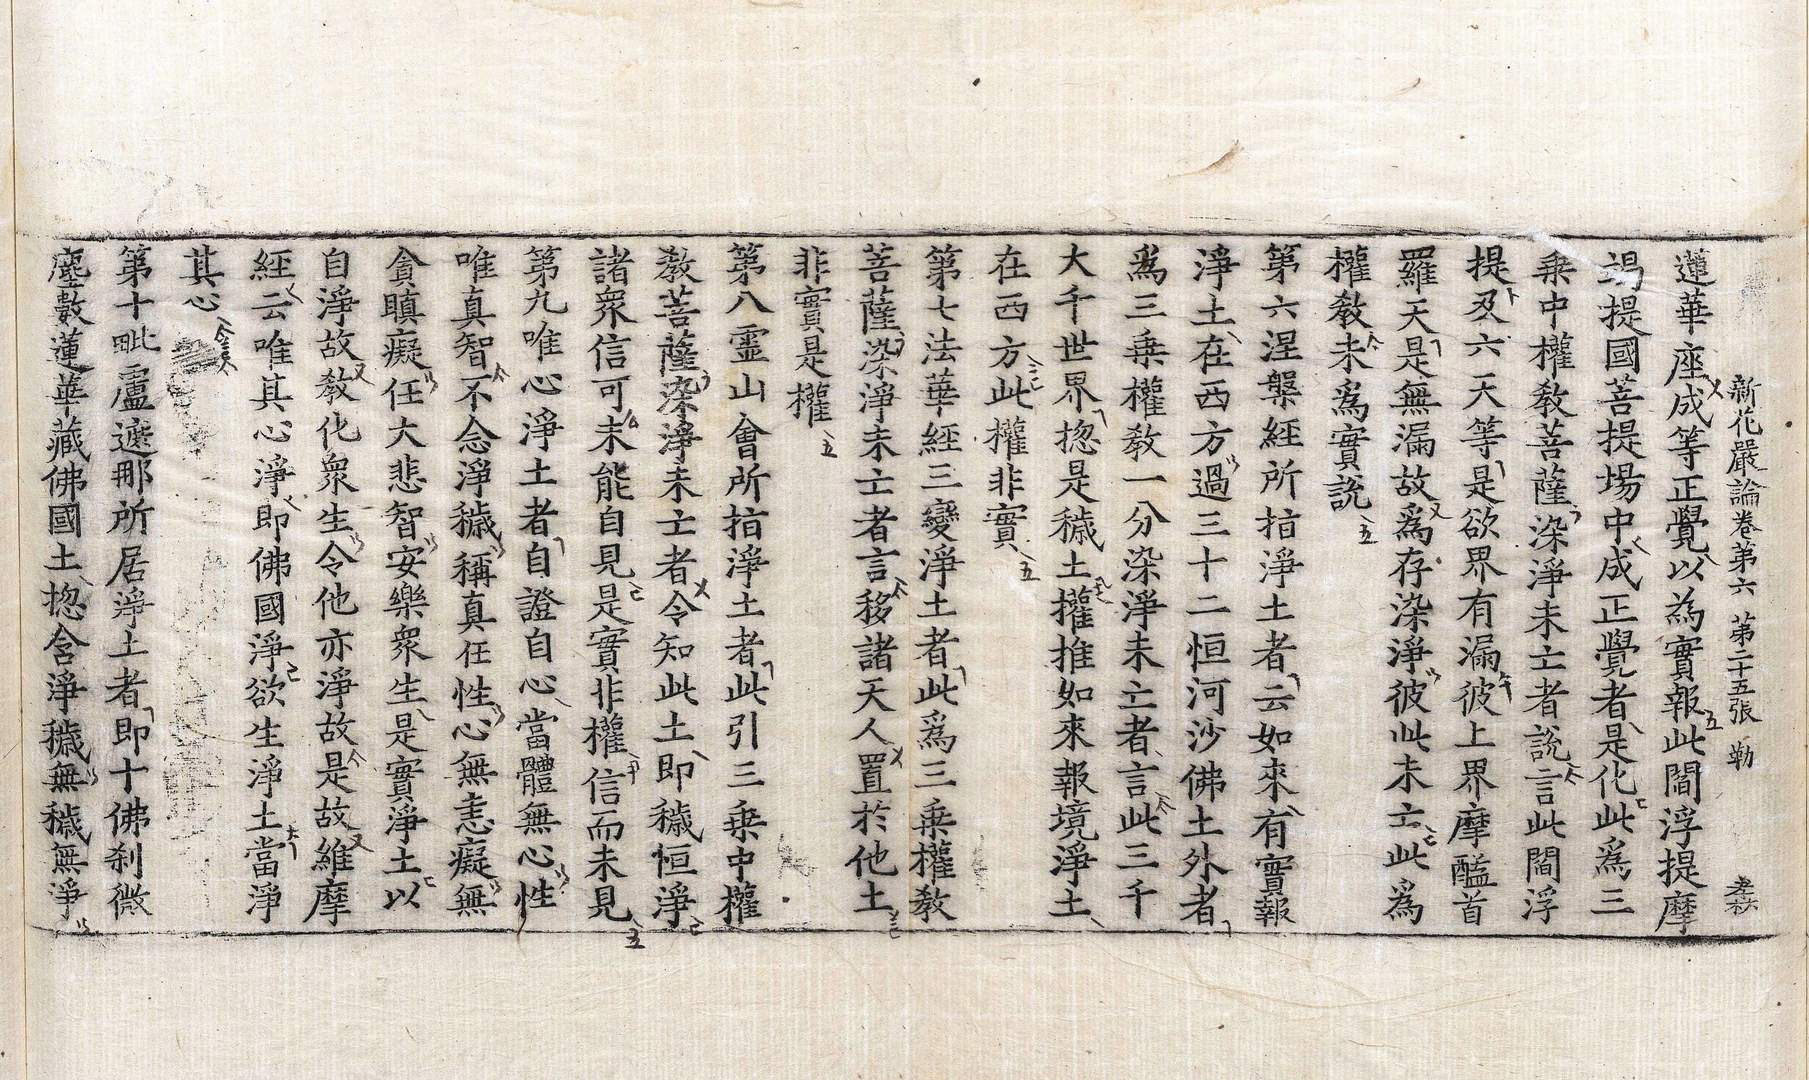 新花嚴論卷第六 第二十五張 勒
蓮華座成等正覺以為實報此閻浮提摩
竭提國菩提場中成正覺者是化此爲三
乗中權教菩薩染淨未亡者說言此閻浮
提及六天等是欲界有漏彼上界摩醯首
羅天是無漏故爲存染淨彼此未亡此爲
權教未爲實說
第六涅槃經所指淨土者云如來有實報
淨土在西方過三十二恒河沙佛土外者
爲三乗權教一分染淨未亡者言此三千
大千世界揔是穢土權推如來報境淨土
在西方此權非實
第七法華經三變淨土者此爲三乗權教
菩薩染淨未亡者言移諸天人置於他土
非實是權
第八靈山會所指淨土者此引三乗中權
教菩薩染淨未亡者令知此土即穢恒淨
諸衆信可未能自見是實非權信而未見
第九唯心淨土者自證自心當體無心性
唯真智不念淨穢稱真任性心無恚癡無
貪瞋癡任大悲智安樂衆生是實淨土以
自淨故教化衆生令他亦淨故是故維摩
經云唯其心淨即佛國淨欲生淨土當淨
其心
第十毗盧遮那所居淨土者即十佛刹微
塵數蓮華藏佛國土揔含淨穢無穢無淨